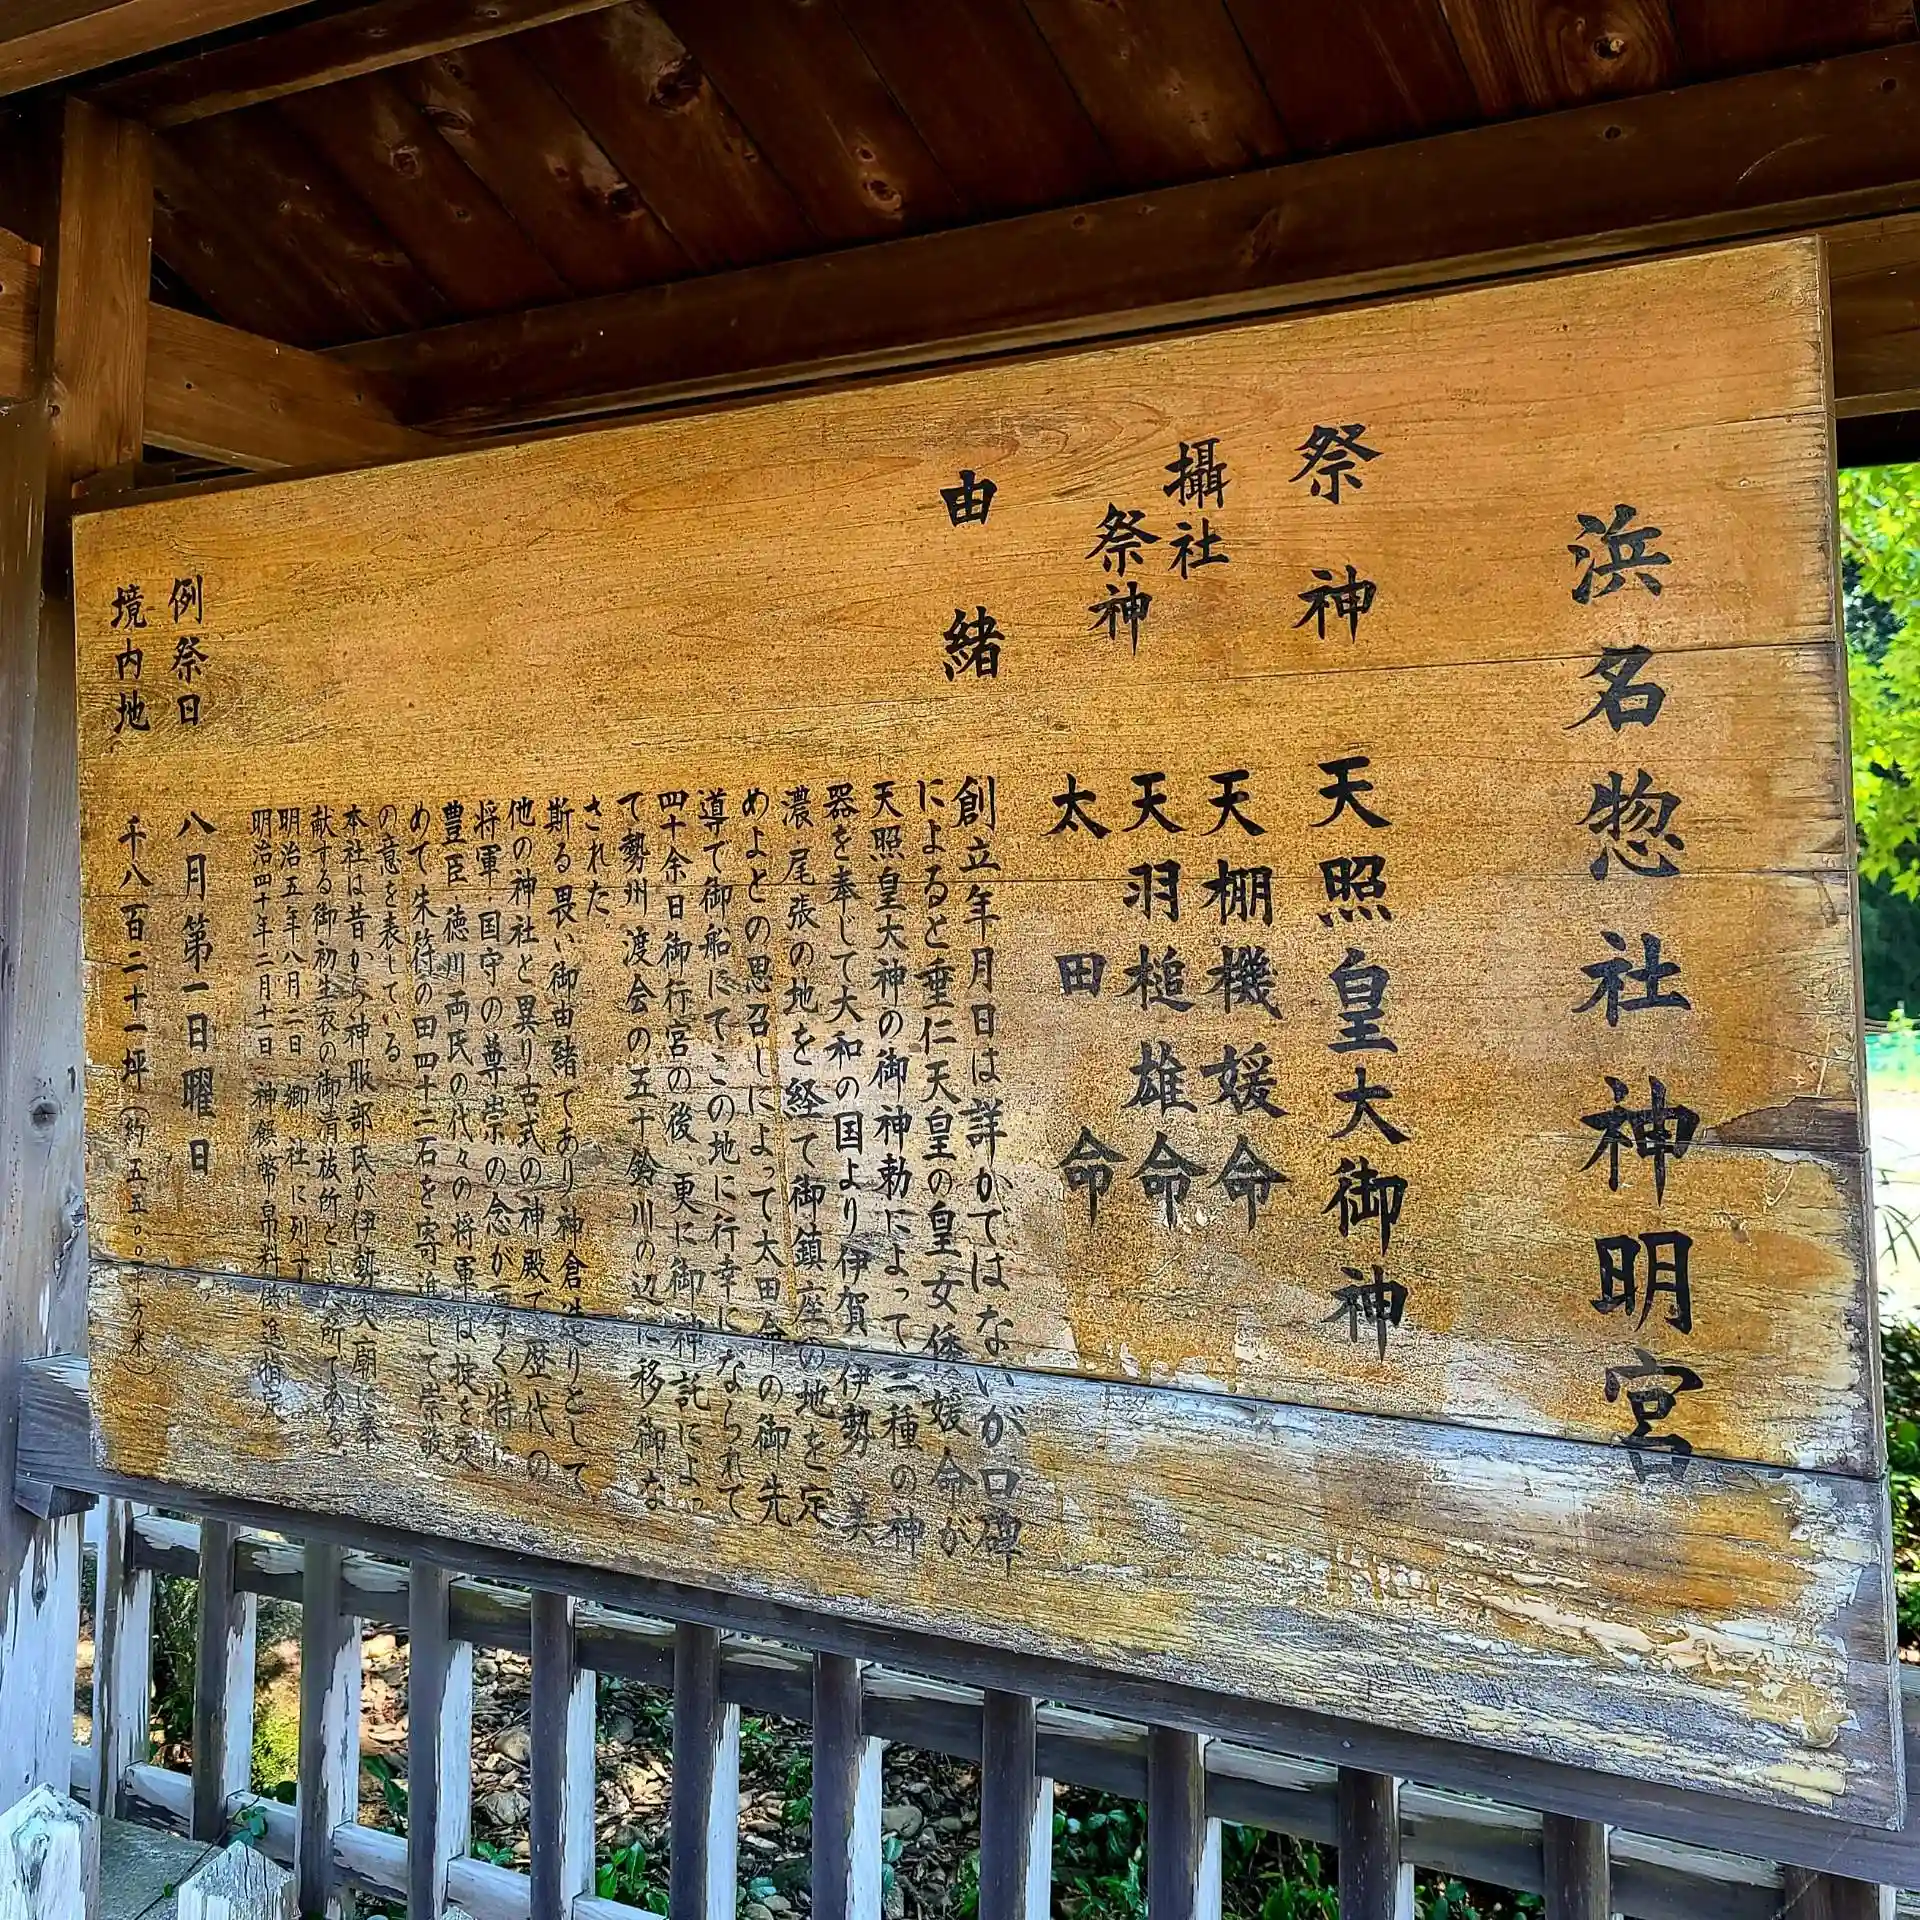 浜名惣社神明宮
祭神 天照皇大御神
攝社
祭神
天棚機媛命
天羽槌雄命
太田命
由緒
創立年月日は詳かではないが口碑
によると垂仁天皇の皇女倭媛命が
天照皇大神の御神勅によって三種の神
器を奉じて大和の国より伊賀 伊勢 美
濃 尾張の地を経て御鎮座の地を定
めよとの思召しによって太田命の御先
導で御船にてこの地に行幸になられて
四十余日御行宮の後、更に御神託によっ
て勢州 渡会の五十鈴川の辺に移御な
された。
斯る畏い御由緒であり神倉造りとして
他の神社と異り古式の神殿で歴代の
将軍 国守の尊崇の念が厚く特に
豊臣 徳川両氏の代々の将軍は掟を定
めて朱符の田四十二石を寄進して崇敬
の意を表している
本社は昔から神服部氏が伊勢大廟に奉
献する御初生衣の御清祓所とした所である。
明治五年八月二日 郷社に列す
明治四十年二月十一日 神饌幣帛料供進指定
例祭日 八月第一日曜日
境内地 千八百二十一坪(約 五五〇〇平方米)